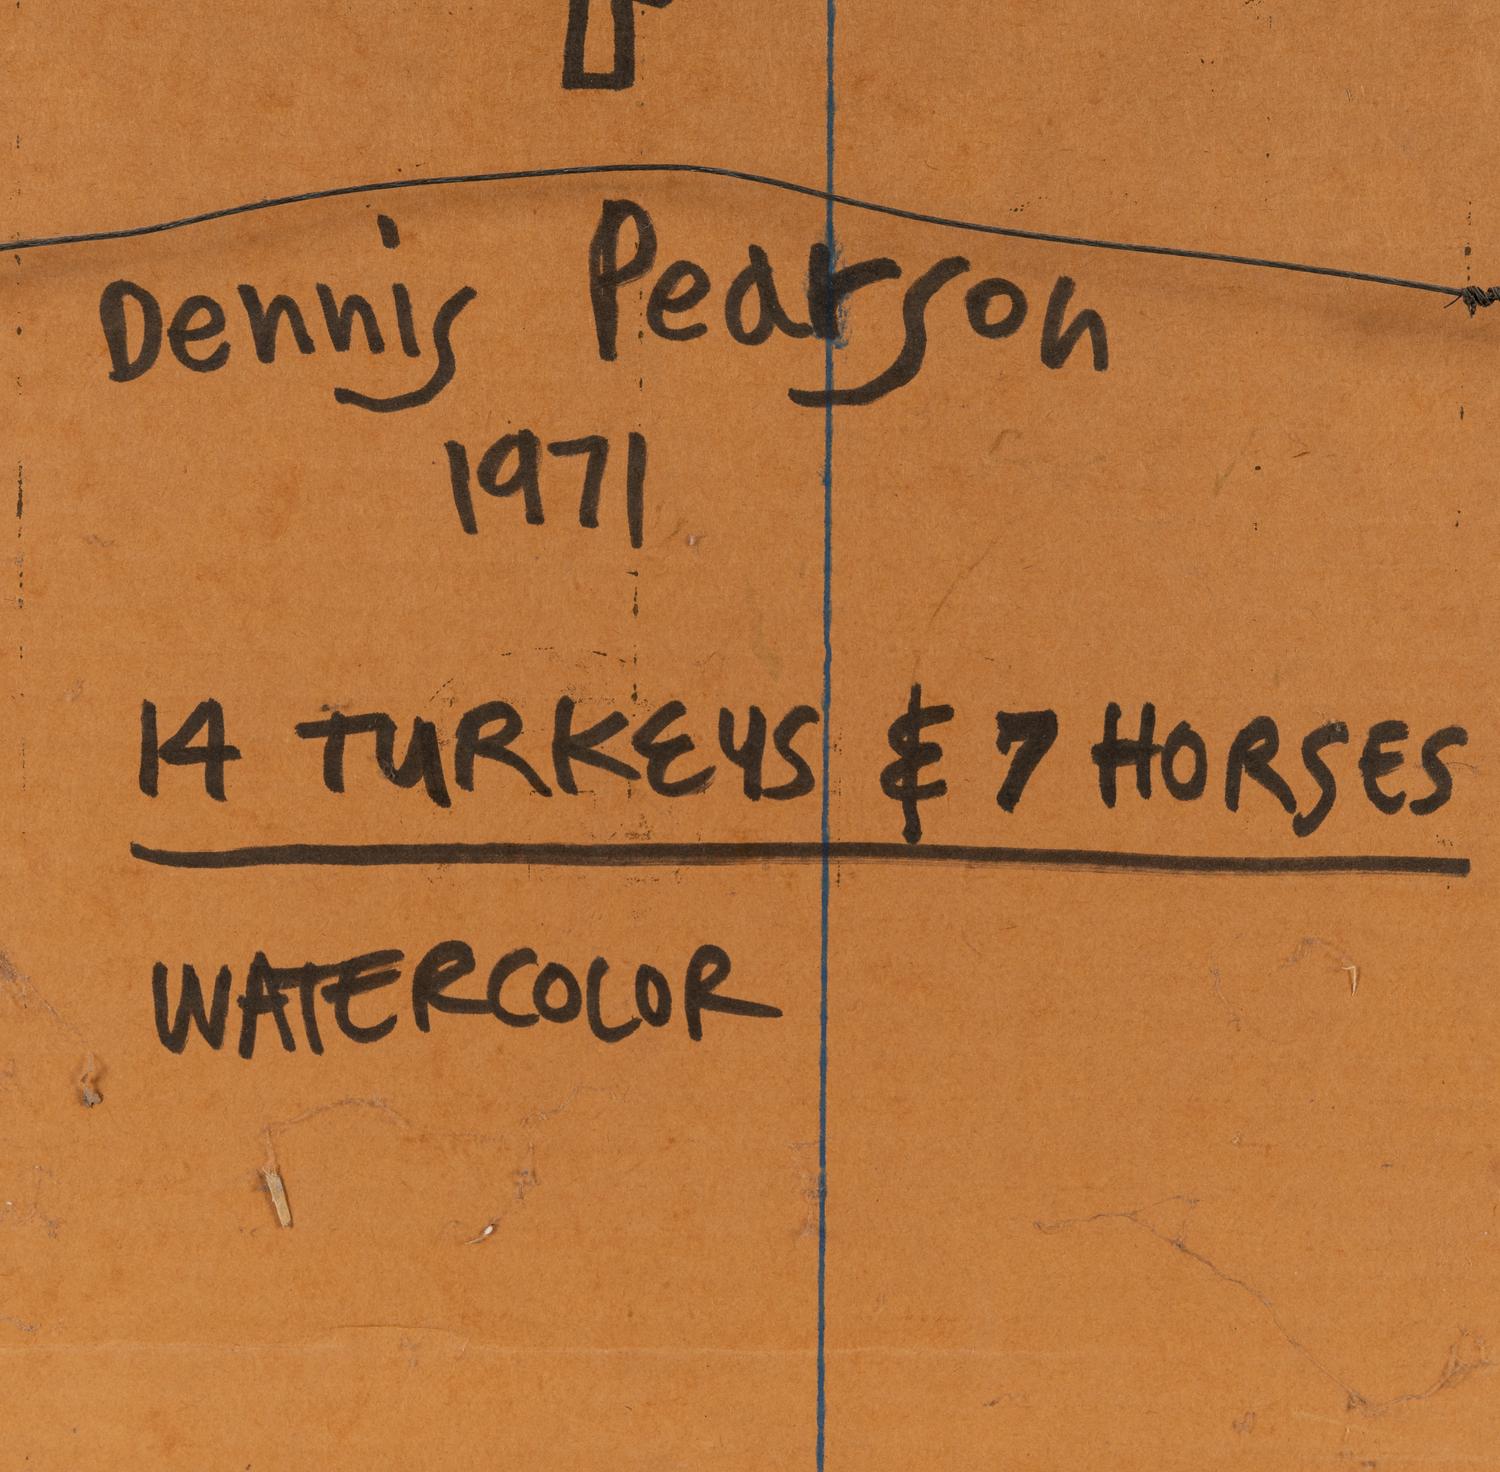 Dennis Pearson
1971
14 TURKEYS & 7 HORSES
WATERCOLOR